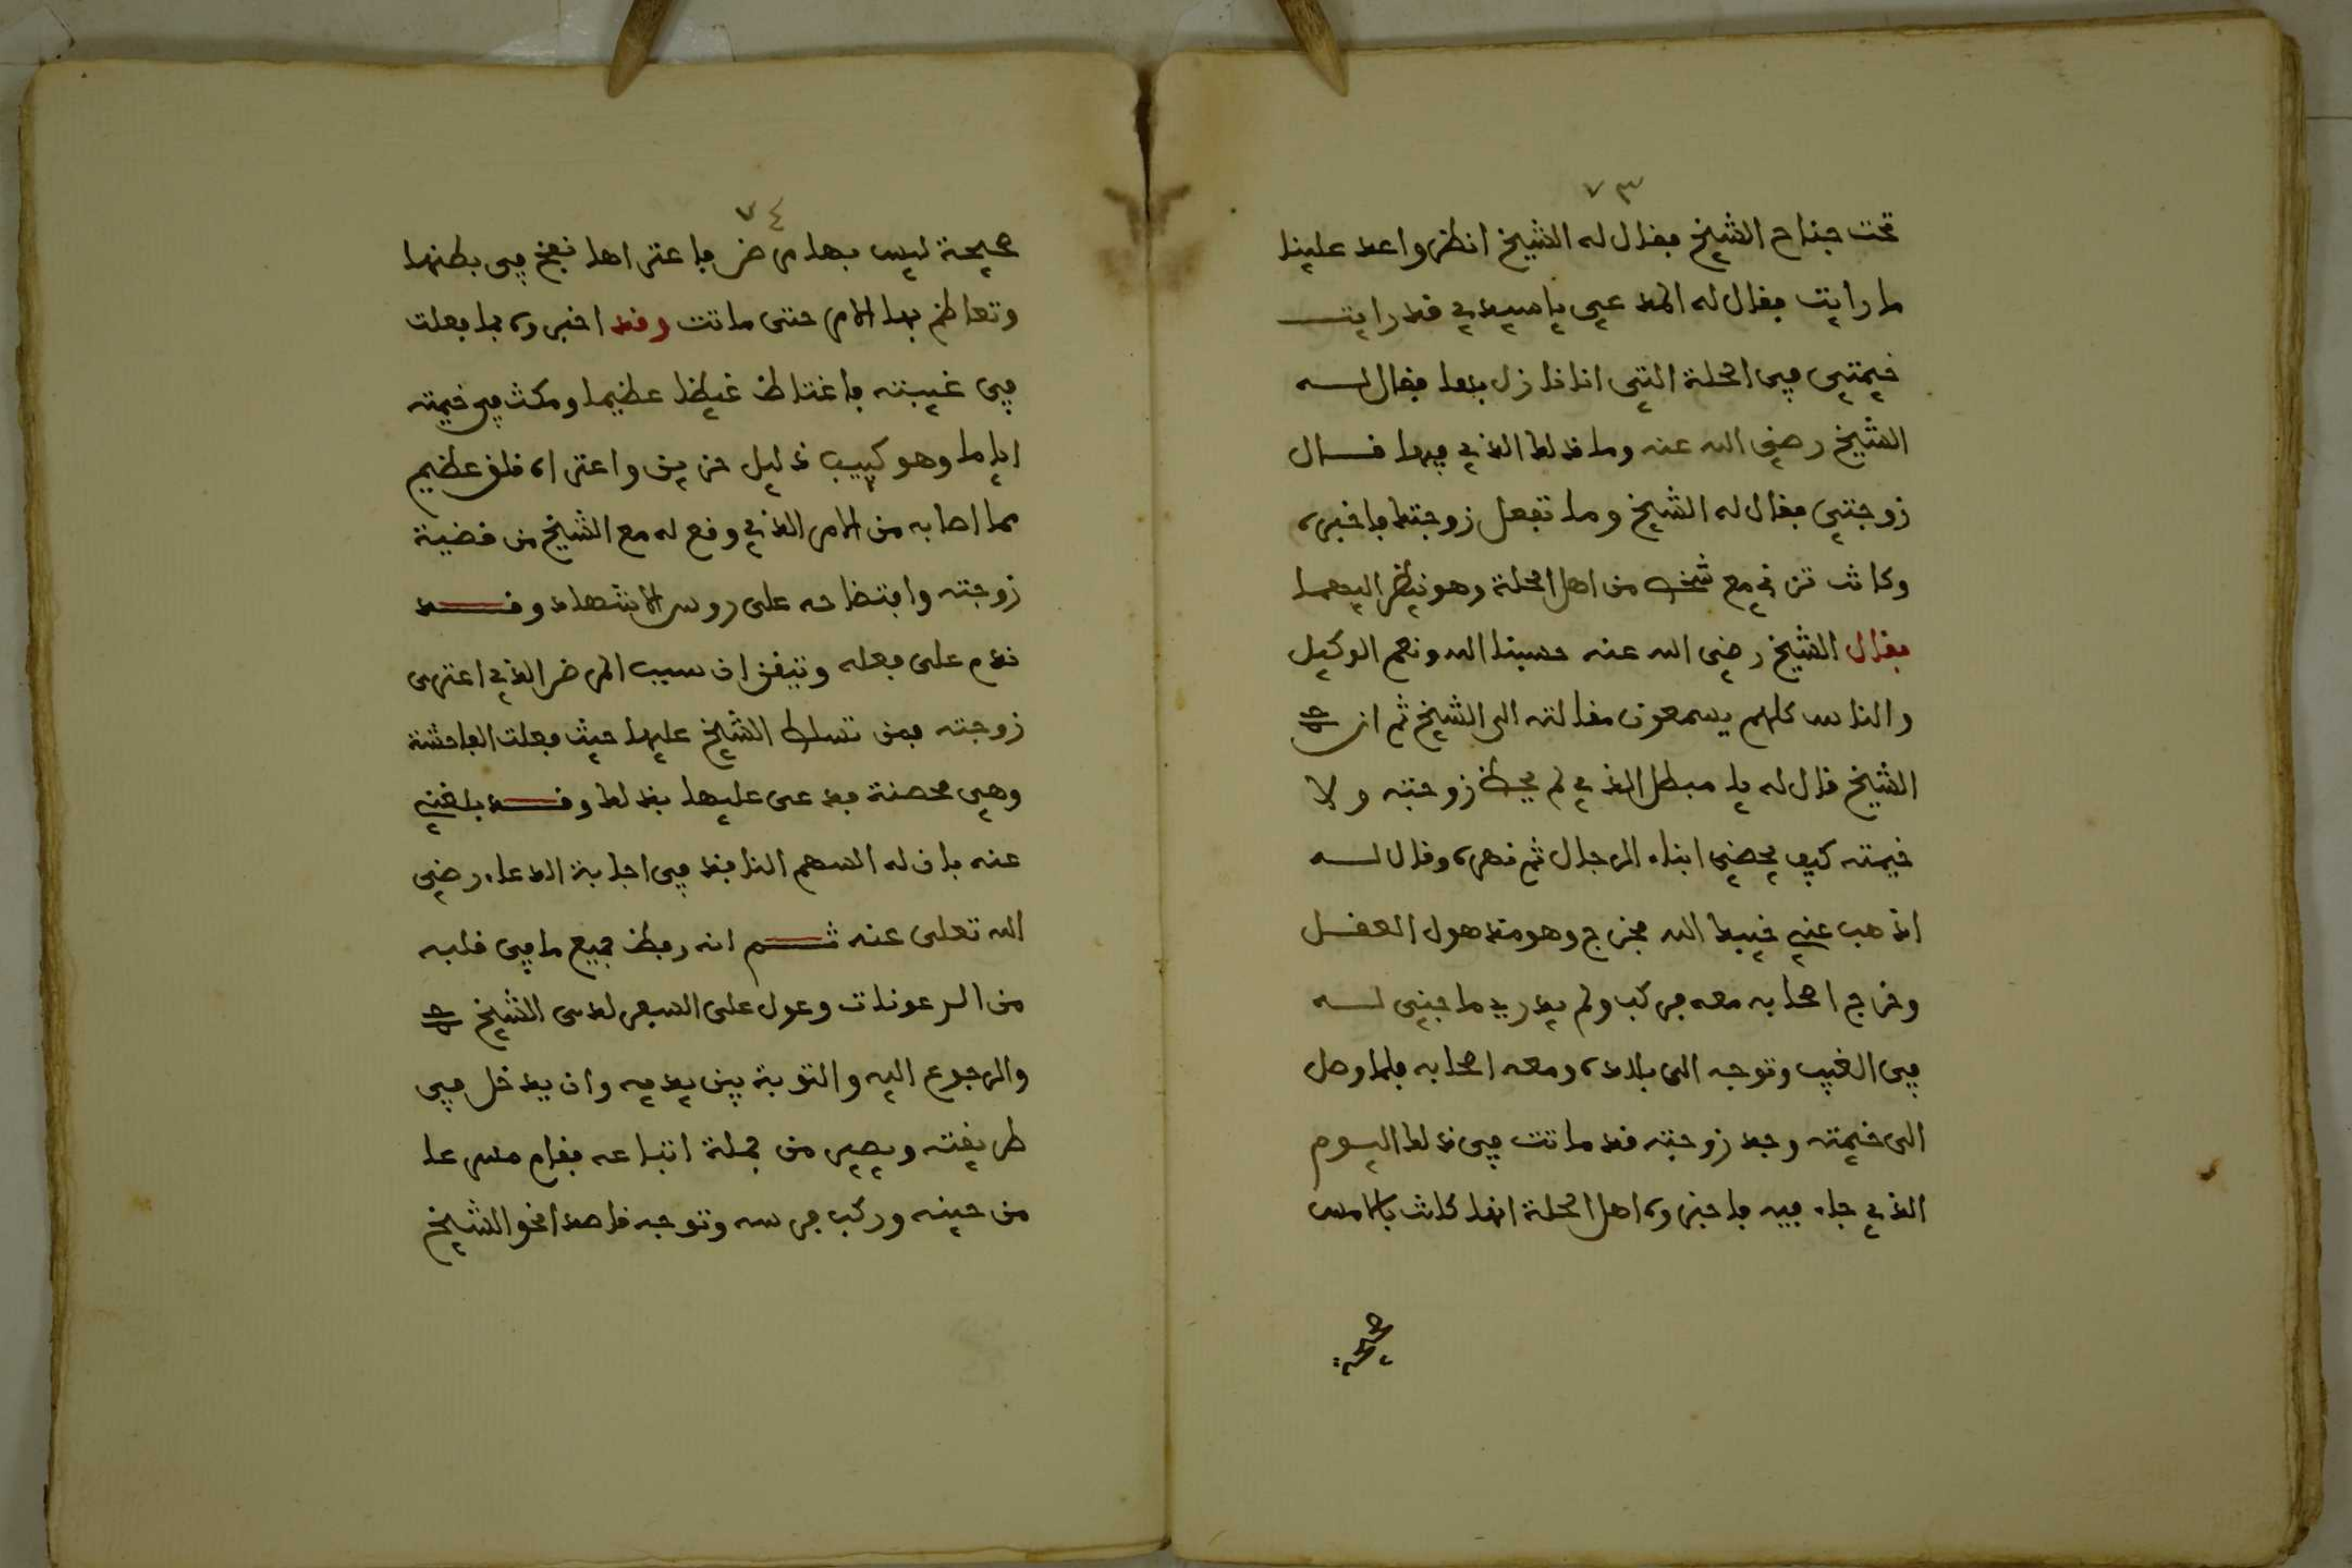 ٧٣
تحت جناح الشيخ فقال له الشيخ انظر واعد علينا
ما رايت فقال له المدعي يا سيدي قد رايت
خيمتي في المحلة التي انا نازل بها فقال له
الشيخ رضي الله عنه وما ذلك الذي فيها قال
زوجتي فقال له الشيخ وما تفعل زوجتك فاخبره
وكانت تزني مع شخص من اهل المحلة وهو ينظر اليهما
فقال الشيخ رضي الله عنه حسبنا الله ونعم الوكيل
والناس كلهم يسمعون مقالته الى الشيخ ثم ان
الشيخ قال له يا مبطل الذي لم يحفظ زوجته ولا
خيمته كيف يحضي ابناء الرجال ثم نهره وقال له
اذهب عني خيبك الله فخرج وهو مذهول العقل
وخرج اصحابه معه فركب ولم يدري ما جني له
في الغيب وتوجه الى بلاده ومعه اصحابه فلما وصل
الى خيمته وجد زوجته قد ماتت في ذلك اليوم
الذي جاء فيه فاخبروه اهل المحلة انها كانت بالامس
صحيحة
٧٤
صحيحة ليس بها مرض فاعتراها نفخ في بطنها
وتعاظم بها الامر حتى ماتت وقد اخبروه بما فعلت
في غيبته فاغتاظ غيظا عظيما ومكث في خيمته
اياما وهو كييب ذليل حزين واعتراه قلق عظيم
مما اصابه من الامر الذي وقع له مع الشيخ من قضية
زوجته وافتضاحه على روس الاشهاد وقد
ندم على فعله وتيقن ان سبب المرض الذي اعترى
زوجته فمن تسلط الشيخ عليها حيث فعلت الفاحشة
وهي محصنة فدعى عليها بذلك وقد بلغني
عنه بان له السهم النافذ في اجابة الدعاء رضي
الله تعلى عنه ثم انه رفض جميع ما في قلبه
من الرعونات وعول على السفر لدى الشيخ
والرجوع اليه والتوبة بين يديه وان يدخل في
طريقته ويصير من جملة اتباعه فقام مسرعا
من حينه وركب فرسه وتوجه قاصدا نحو الشيخ